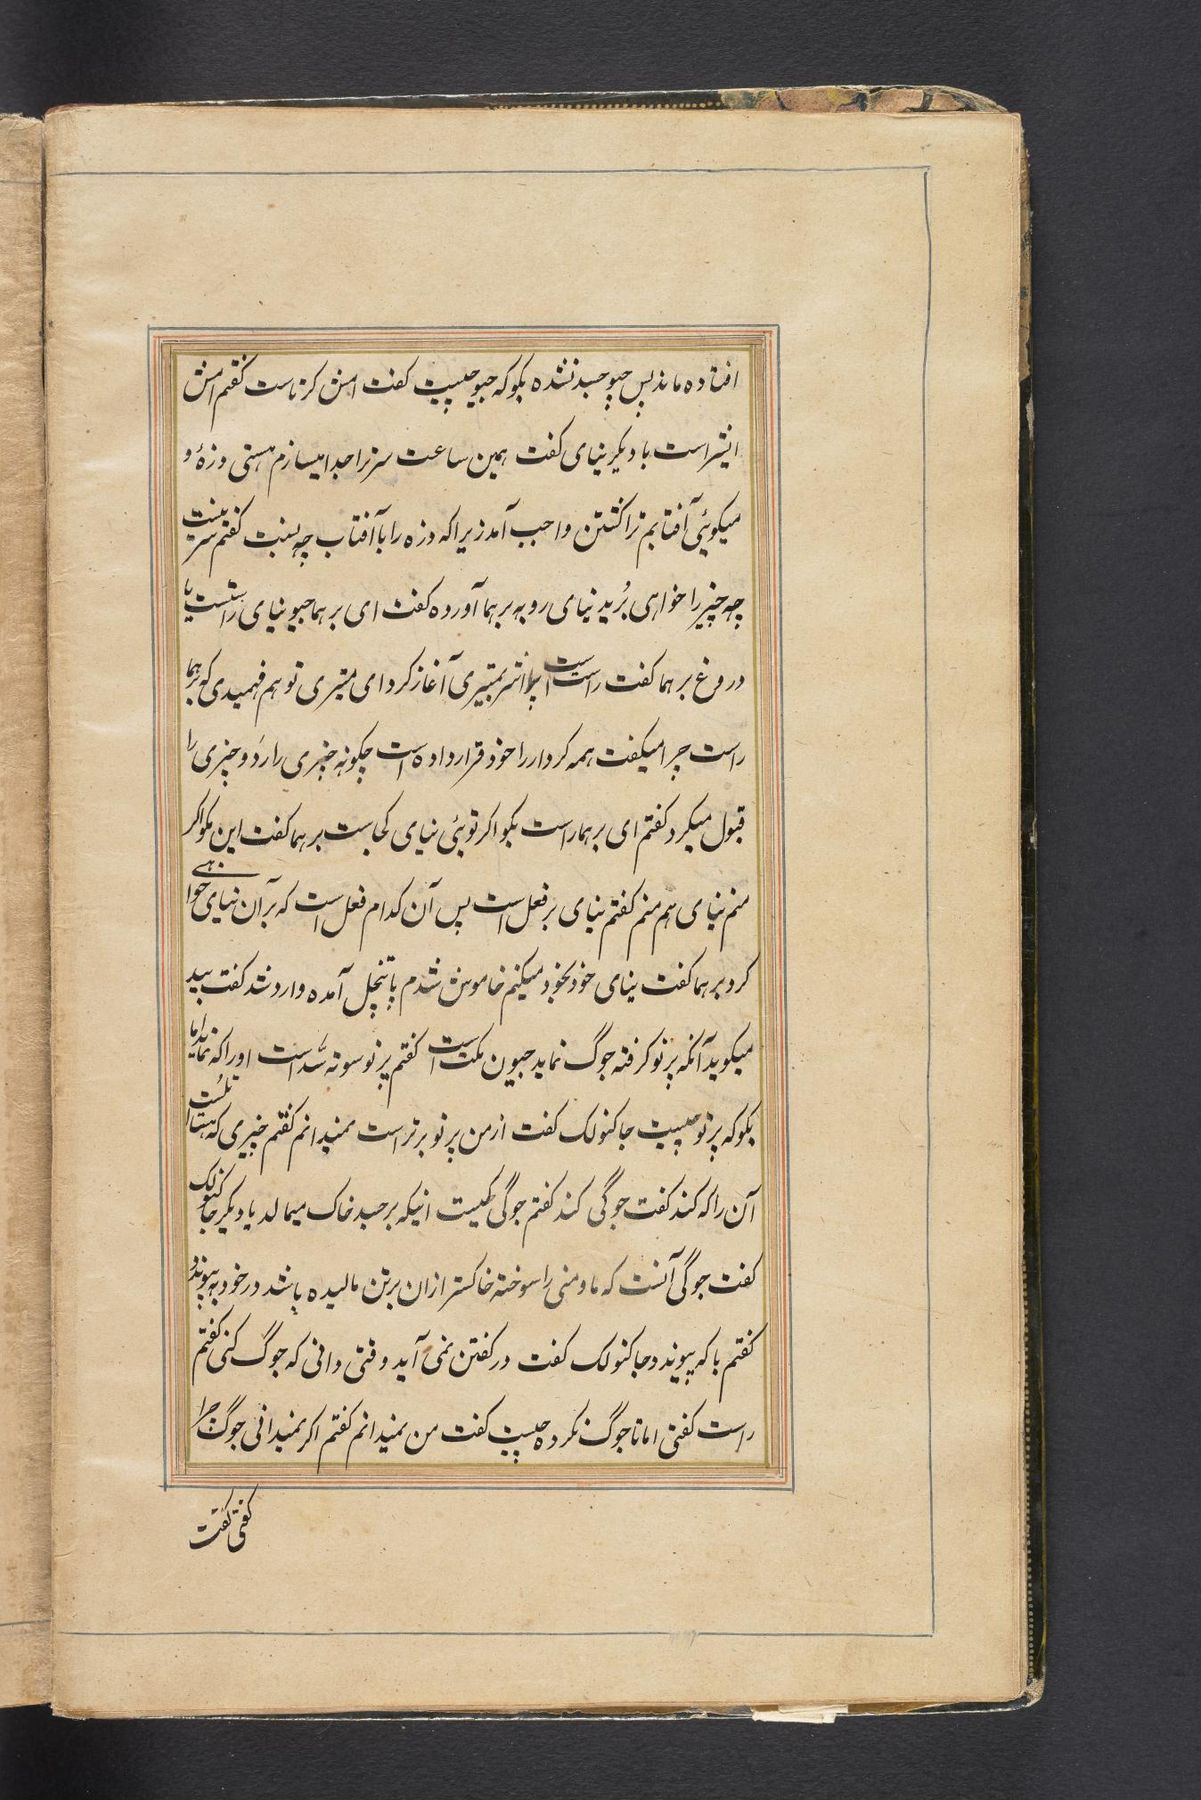 افتاده ماند پس جیو جسد نشده بکو که جیو چیست کفت امش کرتاست کفتم امش
ایشر است با دیکر نیای کفت همین ساعت سرترا جدا میسازم هستی ذره و
میکوئی آفتابم ترا کشتن واجب آمد زیرا که ذره را با آفتاب چه نسبت کفتم سر نیست
چه چیز را خواهی بُرید نیای رو به برهما آورده کفت ای برهما جیو نیای راستست یا
دروغ برهما کفت راست است آغاز کرد ای متیری تو هم فهمیدی که برهما
راست چرا میکفت همه کردار را خود قرار داده است چکونه چیزی را رَد و چیزی را
قبول میکرد کفتم ای برهما راست بکو اکر توئی نیای کجاست برهما کفت این مکو اکر
منم نیای هم منم کفتم نیای بر فعل است پس آن کدام فعل است که بر آن نیای خواهی
کرد برهما کفت نیای خود بخود میکنم خاموش شدم پاتنجل آمده وارد شد کفت بید
میکوید آنکه پرنو کرفته جوگ نماید جیون مکت است کفتم پرنو سوته شد است او را که نماید اما
بکو که پرنو چیست جاکنولک کفت از من پرنو برتر است نمیدانم کفتم چیزی که
آن را که کند کفت جوگی کند کفتم جوگی کیست اینکه بر جسد خاک میمالد یا دیکر جاکنولک
کفت جوگی آنست که ما و منی را سوخته خاکستر ازان بر تن مالیده باشد در خود به پیوندد
کفتم با که پیوندد جاکنولک کفت در کفتن نمی آید وقتی دانی که جوگ کنی کفتم
راست کفتی اما تا جوگ نکرده چیست کفت من نمیدانم کفتم اکر نمیدانی جوگ چرا
کفتی کفت